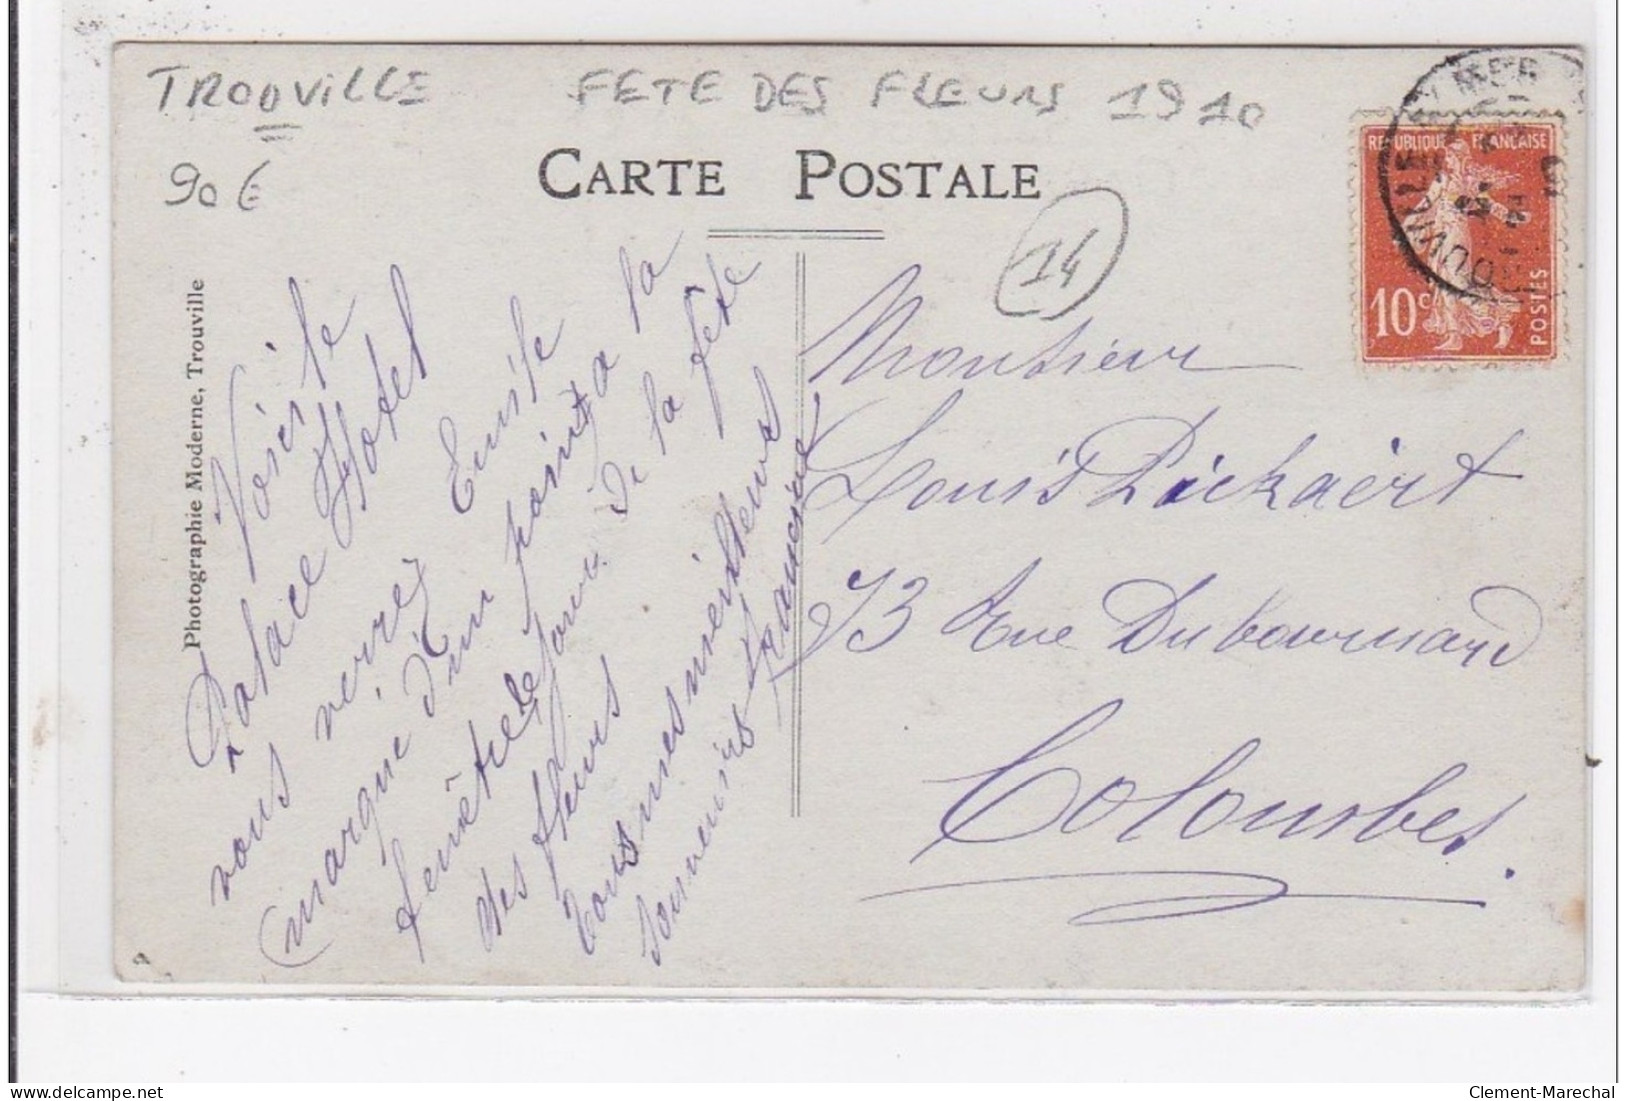 TROUVILLE FETE DES FLEURS 1910
90 €
CARTE POSTALE
14
REPUBLIQUE FRANÇAISE
10c
POSTES
Photographie Moderne, Trouville
Voici le
Palace Hotel
vous verrez Emile
marqué d'un point à la
fenêtre le jour de la fête
des fleurs
tous mes meilleurs
souvenirs Francine
Monsieur
Louis Pickaert
73 Rue Dubournard
Colombes.
Clement-Marechal